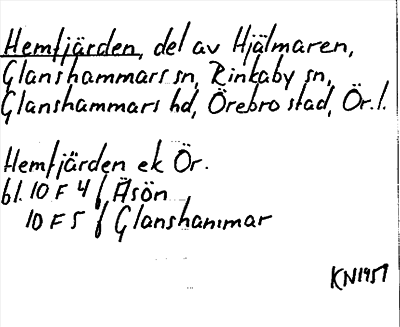 Hemfjärden, del av Hjälmaren,
Glanshammars sn, Rinkaby sn,
Glanshammars hd, Örebro stad, Ör. l.
Hemfjärden ek Ör.
bl. 10 F 4 f Äsön
10 F 5 f Glanshammar
KN1957